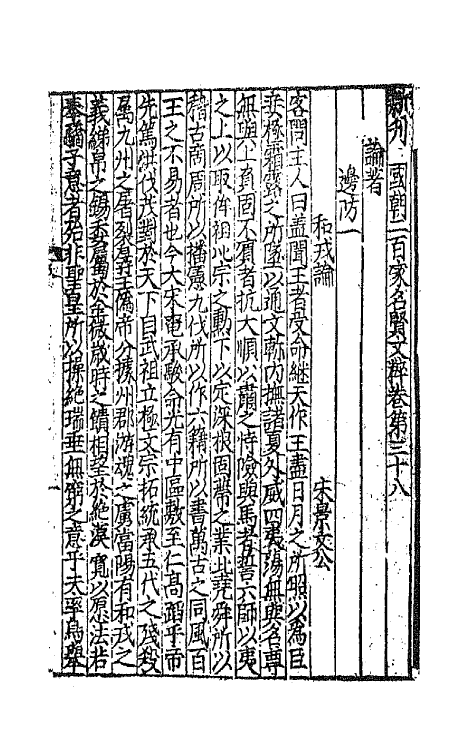 新刊三國朝二百家名賢文粹卷第三十八
論著
邊防一
和戎論　宋景文公
客問王人曰蓋聞王者受命継天作王盡日月之所照以為臣
妾極霜露之所墜以通文軌内撫諸夏外威四夷蕩無與名尊
無與上負固不賔者抗大順以
之恃險與馬者誓六師以夷
之上以取侔祖宗之勳下以定深根固蔕之業此堯舜所以
稽古商周所以播憲九伐所以作六籍所以書萬古之同風百
王之不易者也今大宋奄承駿命光有中區敷至仁高蹈乎帝
先篤洪伐茂
於天下自武祖立極文宗拓統承五代之
九州之屠裂
王僞帝分據州郡游魂之虜當陽有和戎之
義綈帛之錫委屬於
歲時之饋相望於絶漠寛以原法若
奉驕子意者殆非聖皇所以操絶瑞垂無窮之意乎夫率烏舉